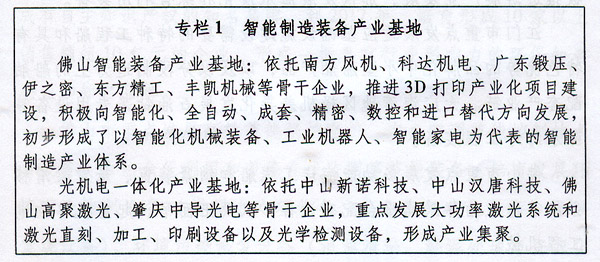 专栏1 智能制造装备产业基地
佛山智能装备产业基地：依托南方风机、科达机电、广东锻压、
伊之密、东方精工、丰凯机械等骨干企业，推进3D打印产业化项目建
设，积极向智能化、全自动、成套、精密、数控和进口替代方向发展，
初步形成了以智能化机械装备、工业机器人、智能家电为代表的智能
制造产业体系。
光机电一体化产业基地：依托中山新诺科技、中山汉唐科技、佛
山高聚激光、肇庆中导光电等骨干企业，重点发展大功率激光系统和
激光直刻、加工、印刷设备以及光学检测设备，形成产业集聚。